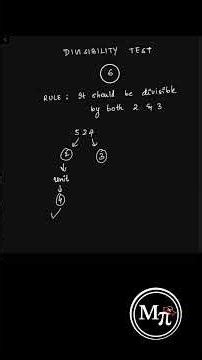 DIVISIBILITY TEST
6
RULE : It should be divisible
by both 2 & 3
524
2 3
unit
4
Mπ